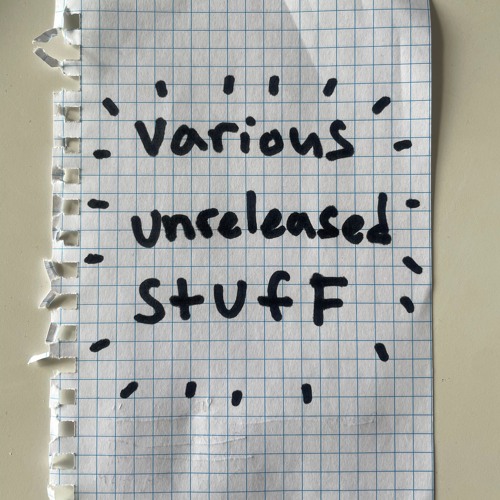 various
unreleased
stufF